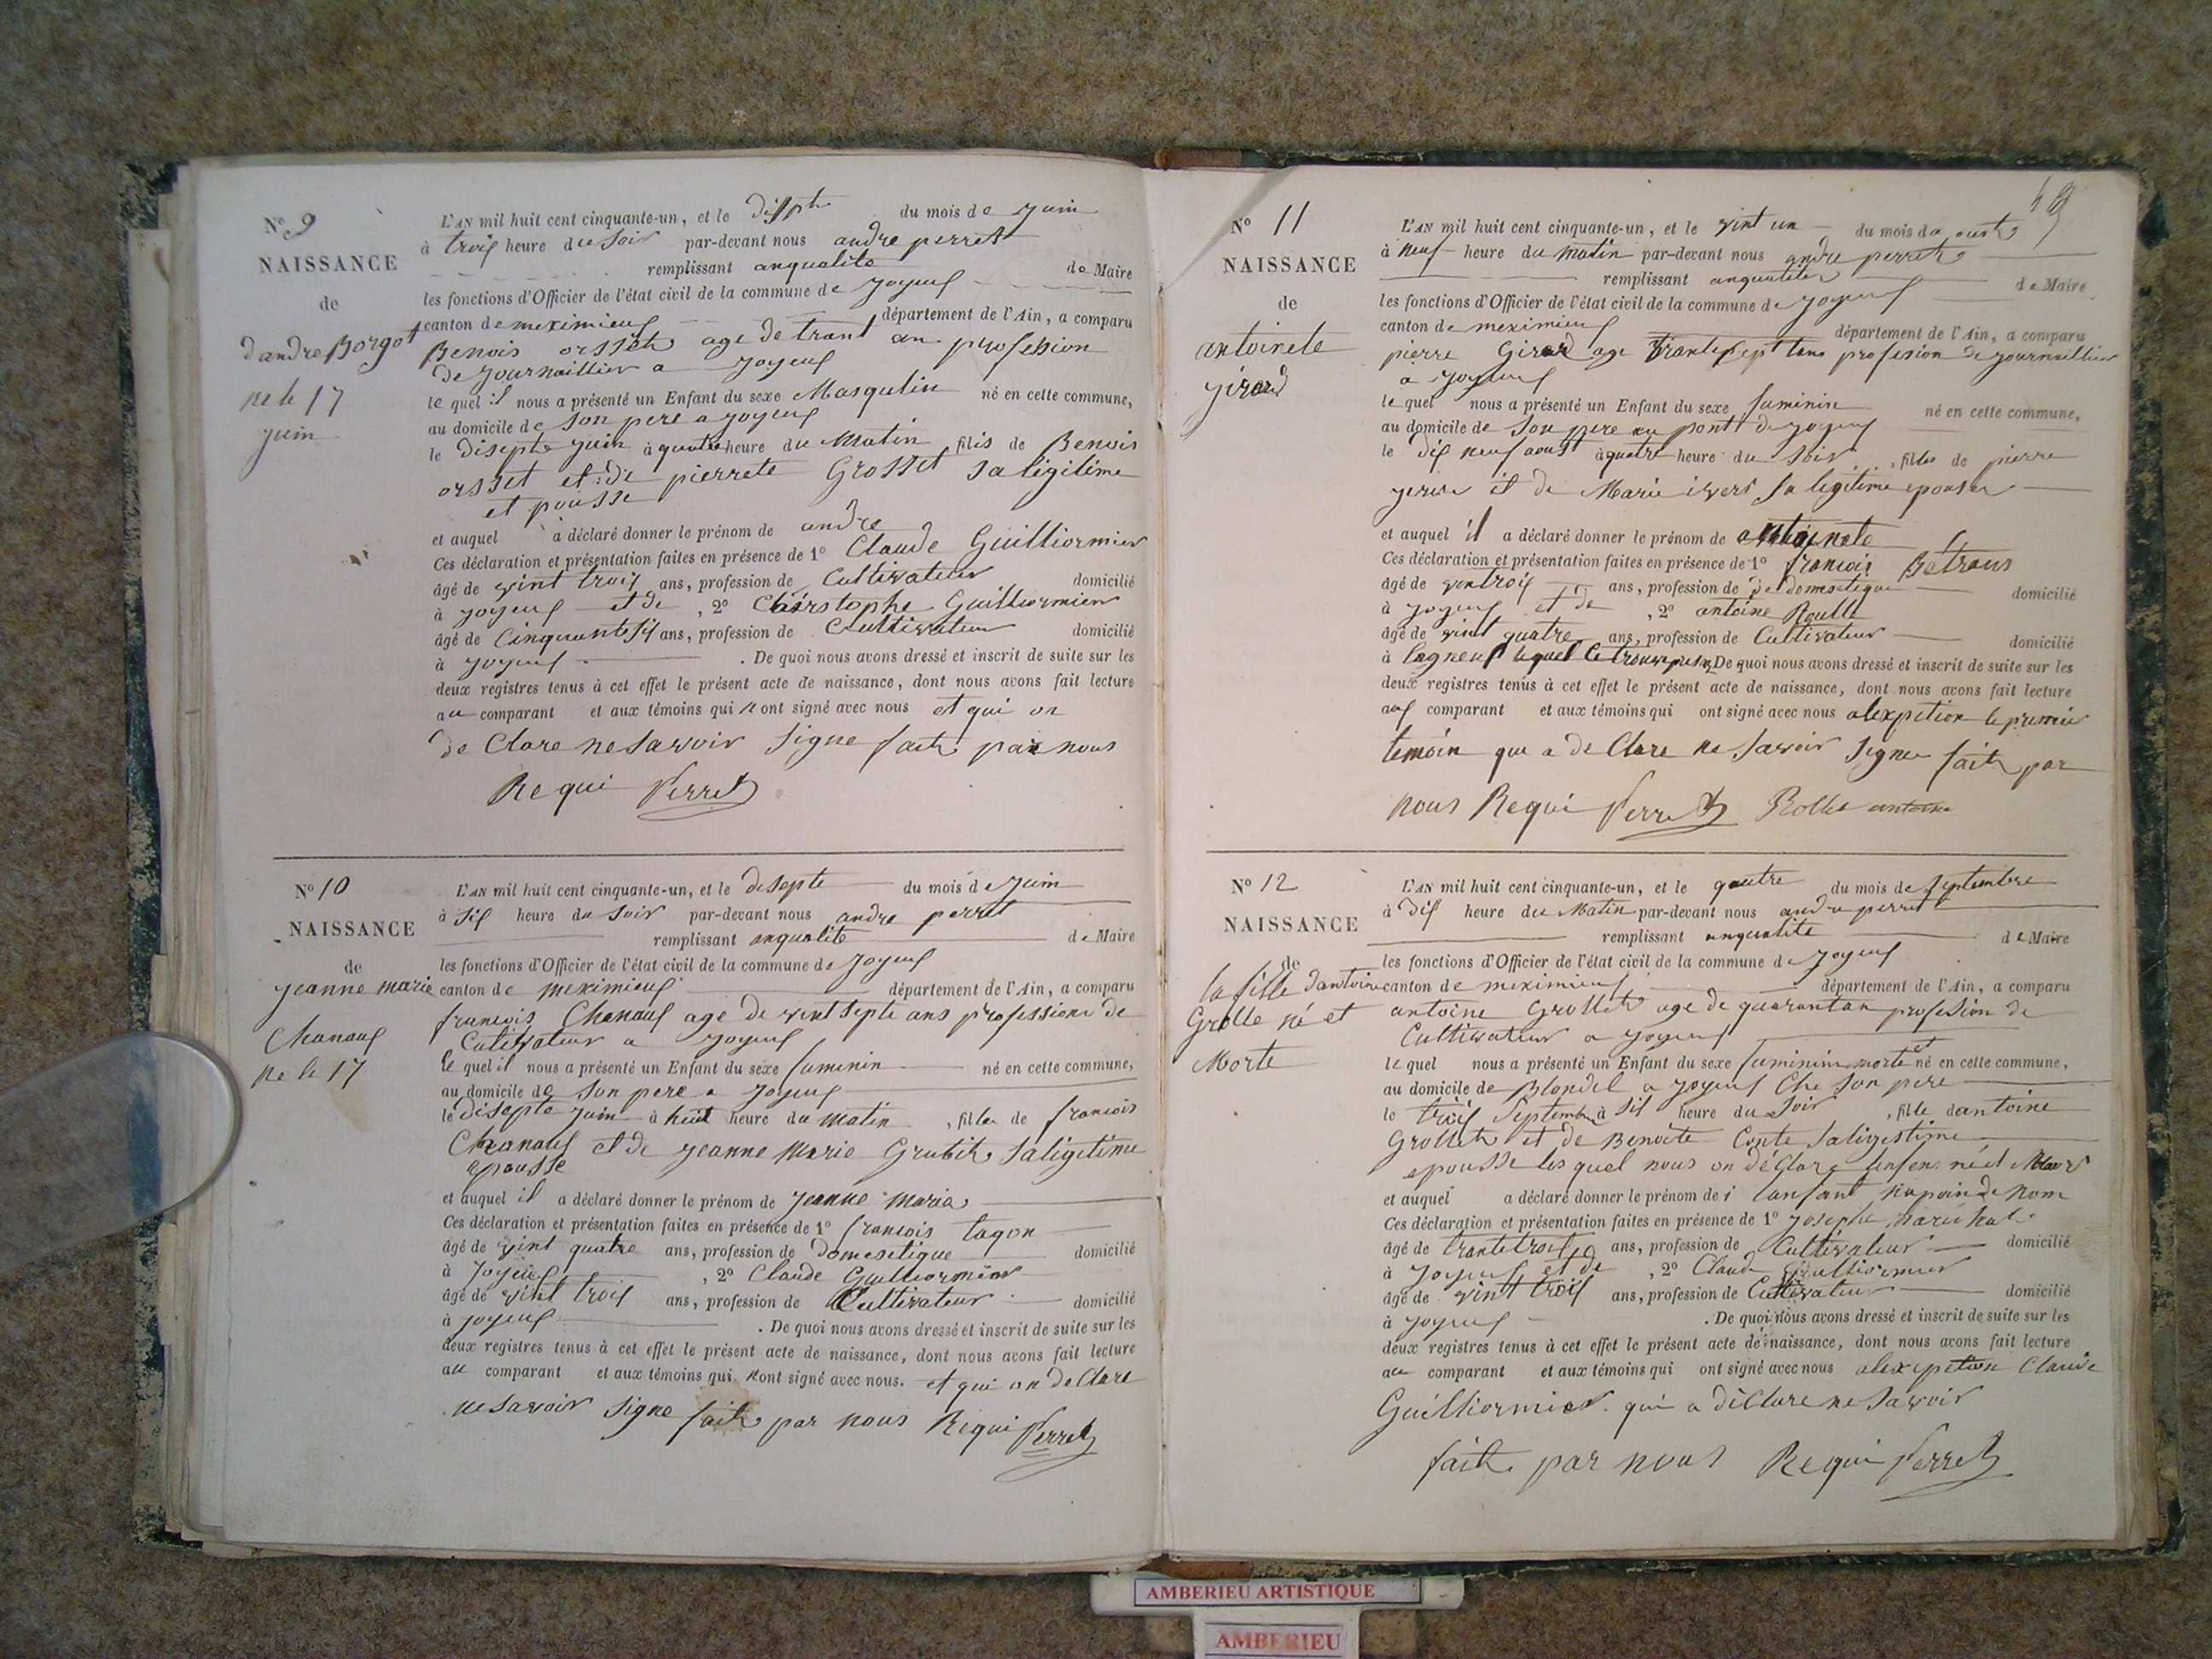 N° 9
NAISSANCE
de
dandre Borgot
ne le 17
juin
L'AN mil huit cent cinquante-un, et le dissept du mois de juin
à trois heure du soir par-devant nous andre perret
remplissant anqualite de Maire
les fonctions d'Officier de l'état civil de la commune de Joyeux
canton de meximieux département de l'Ain, a comparu
Benois orsset age de trant an profession
de journaillier a joyeux
le quel il nous a présenté un Enfant du sexe Masqulin né en cette commune,
au domicile de son pere a joyeux
le disepte juin à quatre heure du Matin, filis de Benois
orsset et de pierrete Grosset sa ligitime
et pousse
et auquel a déclaré donner le prénom de andre
Ces déclaration et présentation faites en présence de 1° Claude Guilliormier
âgé de vint trois ans, profession de Cultivateur domicilié
à joyeux et de , 2° Chirstophe Guilliormier
âgé de Cinquante six ans, profession de Cultivateur domicilié
à joyeux . De quoi nous avons dressé et inscrit de suite sur les
deux registres tenus à cet effet le présent acte de naissance, dont nous avons fait lecture
au comparant et aux témoins qui n ont signé avec nous et qui on
de Clare ne savoir signe fait par nous
Requi Perret
N° 10
NAISSANCE
de
jeanne marie
Chanauf
ne le 17
L'AN mil huit cent cinquante-un, et le disepte du mois de juin
à six heure du soir par-devant nous andre perret
remplissant anqualite de Maire
les fonctions d'Officier de l'état civil de la commune de Joyeux
canton de meximieux département de l'Ain, a comparu
francois Chanauf age de vint septe ans professione de
Cultivateur a joyeux
le quel il nous a présenté un Enfant du sexe faminin né en cette commune,
au domicile de son pere a Joyeux
le disepte juin à huit heure du matin , filles de francois
Chanauf et de jeanne Marie Grubit saligitime
epousse
et auquel il a déclaré donner le prénom de jeanne maria
Ces déclaration et présentation faites en présence de 1° francois tagon
âgé de vint quatre ans, profession de domesetique domicilié
à Joyeux , 2° Claude Guilliormier
âgé de vint trois ans, profession de Cultivateur domicilié
à joyeux . De quoi nous avons dressé et inscrit de suite sur les
deux registres tenus à cet effet le présent acte de naissance, dont nous avons fait lecture
au comparant et aux témoins qui n ont signé avec nous. et qui on de Clare
ne savoir signe fait par nous Requi Perret
N° 11
NAISSANCE
de
antoinete
girard
L'AN mil huit cent cinquante-un, et le vint un du mois da oust
à neuf heure du matin par-devant nous andre perret
remplissant anqualiter de Maire
les fonctions d'Officier de l'état civil de la commune de joyeux
canton de meximieux département de l'Ain, a comparu
pierre Girard age trantesept tans profesion de journaillier
a joyeux
le quel nous a présenté un Enfant du sexe faminin né en cette commune,
au domicile de son pere au pont de joyeux
le dix neuf aoust à quatre heure du soir , filles de pierre
et de Marie ivers sa legitime epouser
et auquel il a déclaré donner le prénom de antoinete
Ces déclaration et présentation faites en présence de 1° francois Betrans
âgé de vintrois ans, profession de de domesetique domicilié
à joyeux et de , 2° antoine Roulle
âgé de vint quatre ans, profession de Cultivateur domicilié
à lagneux lequel De quoi nous avons dressé et inscrit de suite sur les
deux registres tenus à cet effet le présent acte de naissance, dont nous avons fait lecture
aux comparant et aux témoins qui ont signé avec nous alexpition le premier
temoin que a de Clare ne savoir signer fait par
nous Requi Perret Rolle antoine
N° 12
NAISSANCE
de
la fille dantoine
Grolle né et
Morte
L'AN mil huit cent cinquante-un, et le quatre du mois de septembre
à dix heure du Matin par-devant nous andre perret
remplissant anqualite de Maire
les fonctions d'Officier de l'état civil de la commune de joyeux
canton de meximieux département de l'Ain, a comparu
antoine Grollet age de quarantan profesion de
Cultivateur a joyeux
le quel nous a présenté un Enfant du sexe faminin morte et né en cette commune,
au domicile de Blondel a joyeux Che son pere
le trois septembre à six heure du soir , fille dantoine
Grollet et de Benoite Conte saligestime
epousse les quel nous on déclare né et Mort
et auquel a déclaré donner le prénom de lanfant napoin de nom
Ces déclaration et présentation faites en présence de 1° joseph
âgé de trante trois ans, profession de Cultivateur domicilié
à joyeux et de , 2° Claude Guilliormier
âgé de vint trois ans, profession de Cultivateur domicilié
à joyeux . De quoi nous avons dressé et inscrit de suite sur les
deux registres tenus à cet effet le présent acte de naissance, dont nous avons fait lecture
au comparant et aux témoins qui ont signé avec nous alexpetion Claude
Guilliormier qui a déClare ne savoir
fait par nous Requi Perret
AMBERIEU ARTISTIQUE
AMBERIEU